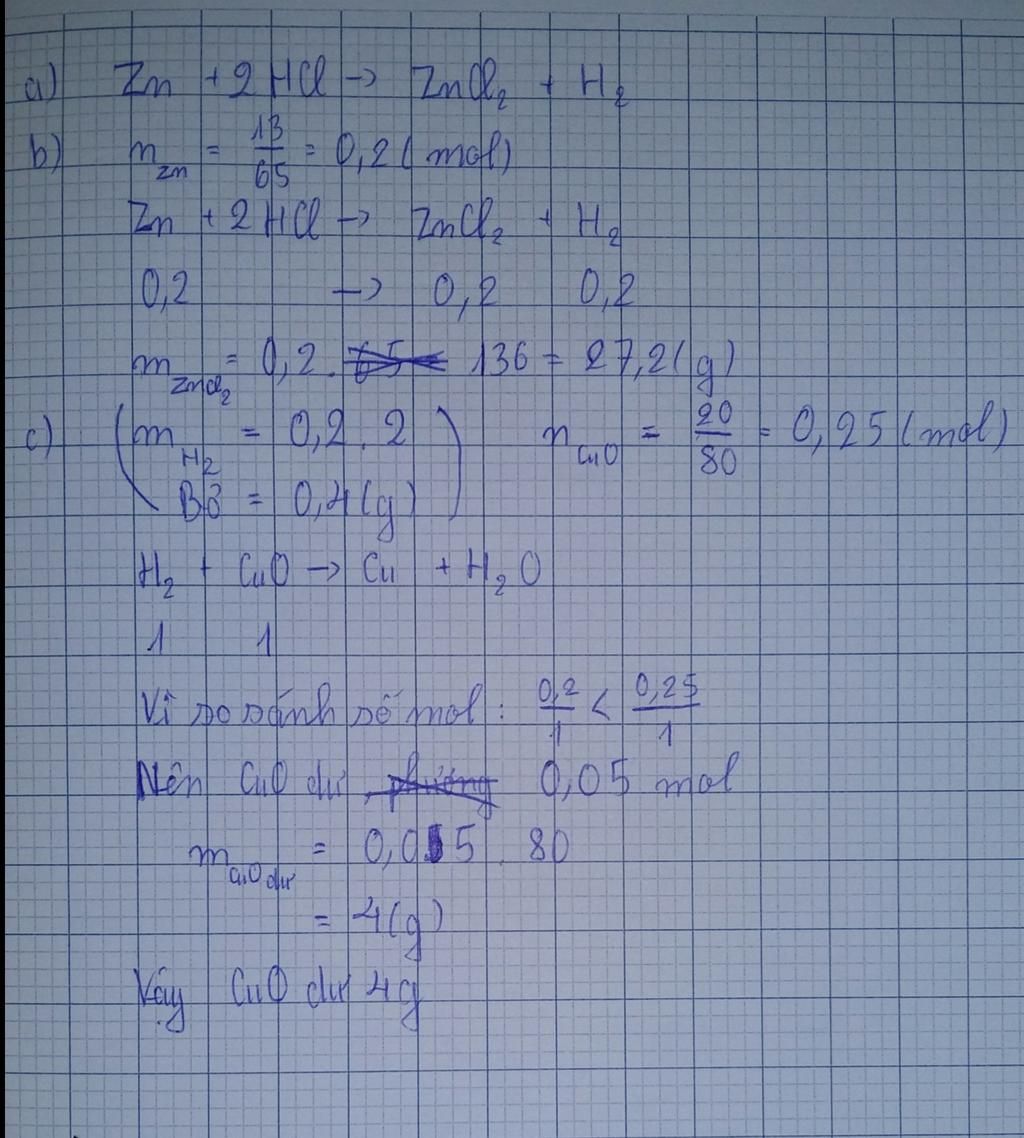 a) Zn + 2HCl → ZnCl₂ + H₂
b) n Zn = 13/65 = 0,2 (mol)
Zn + 2HCl → ZnCl₂ + H₂
0,2 → 0,2 0,2
m ZnCl₂ = 0,2. 136 = 27,2 (g)
c) (m H₂ = 0,2.2 n CuO = 20/80 = 0,25 (mol)
= 0,4 (g))
H₂ + CuO → Cu + H₂O
1 1
Vì so sánh số mol: 0,2/1 < 0,25/1
Nên CuO dư 0,05 mol
m CuO dư = 0,05 . 80
= 4 (g)
Vậy CuO dư 4g